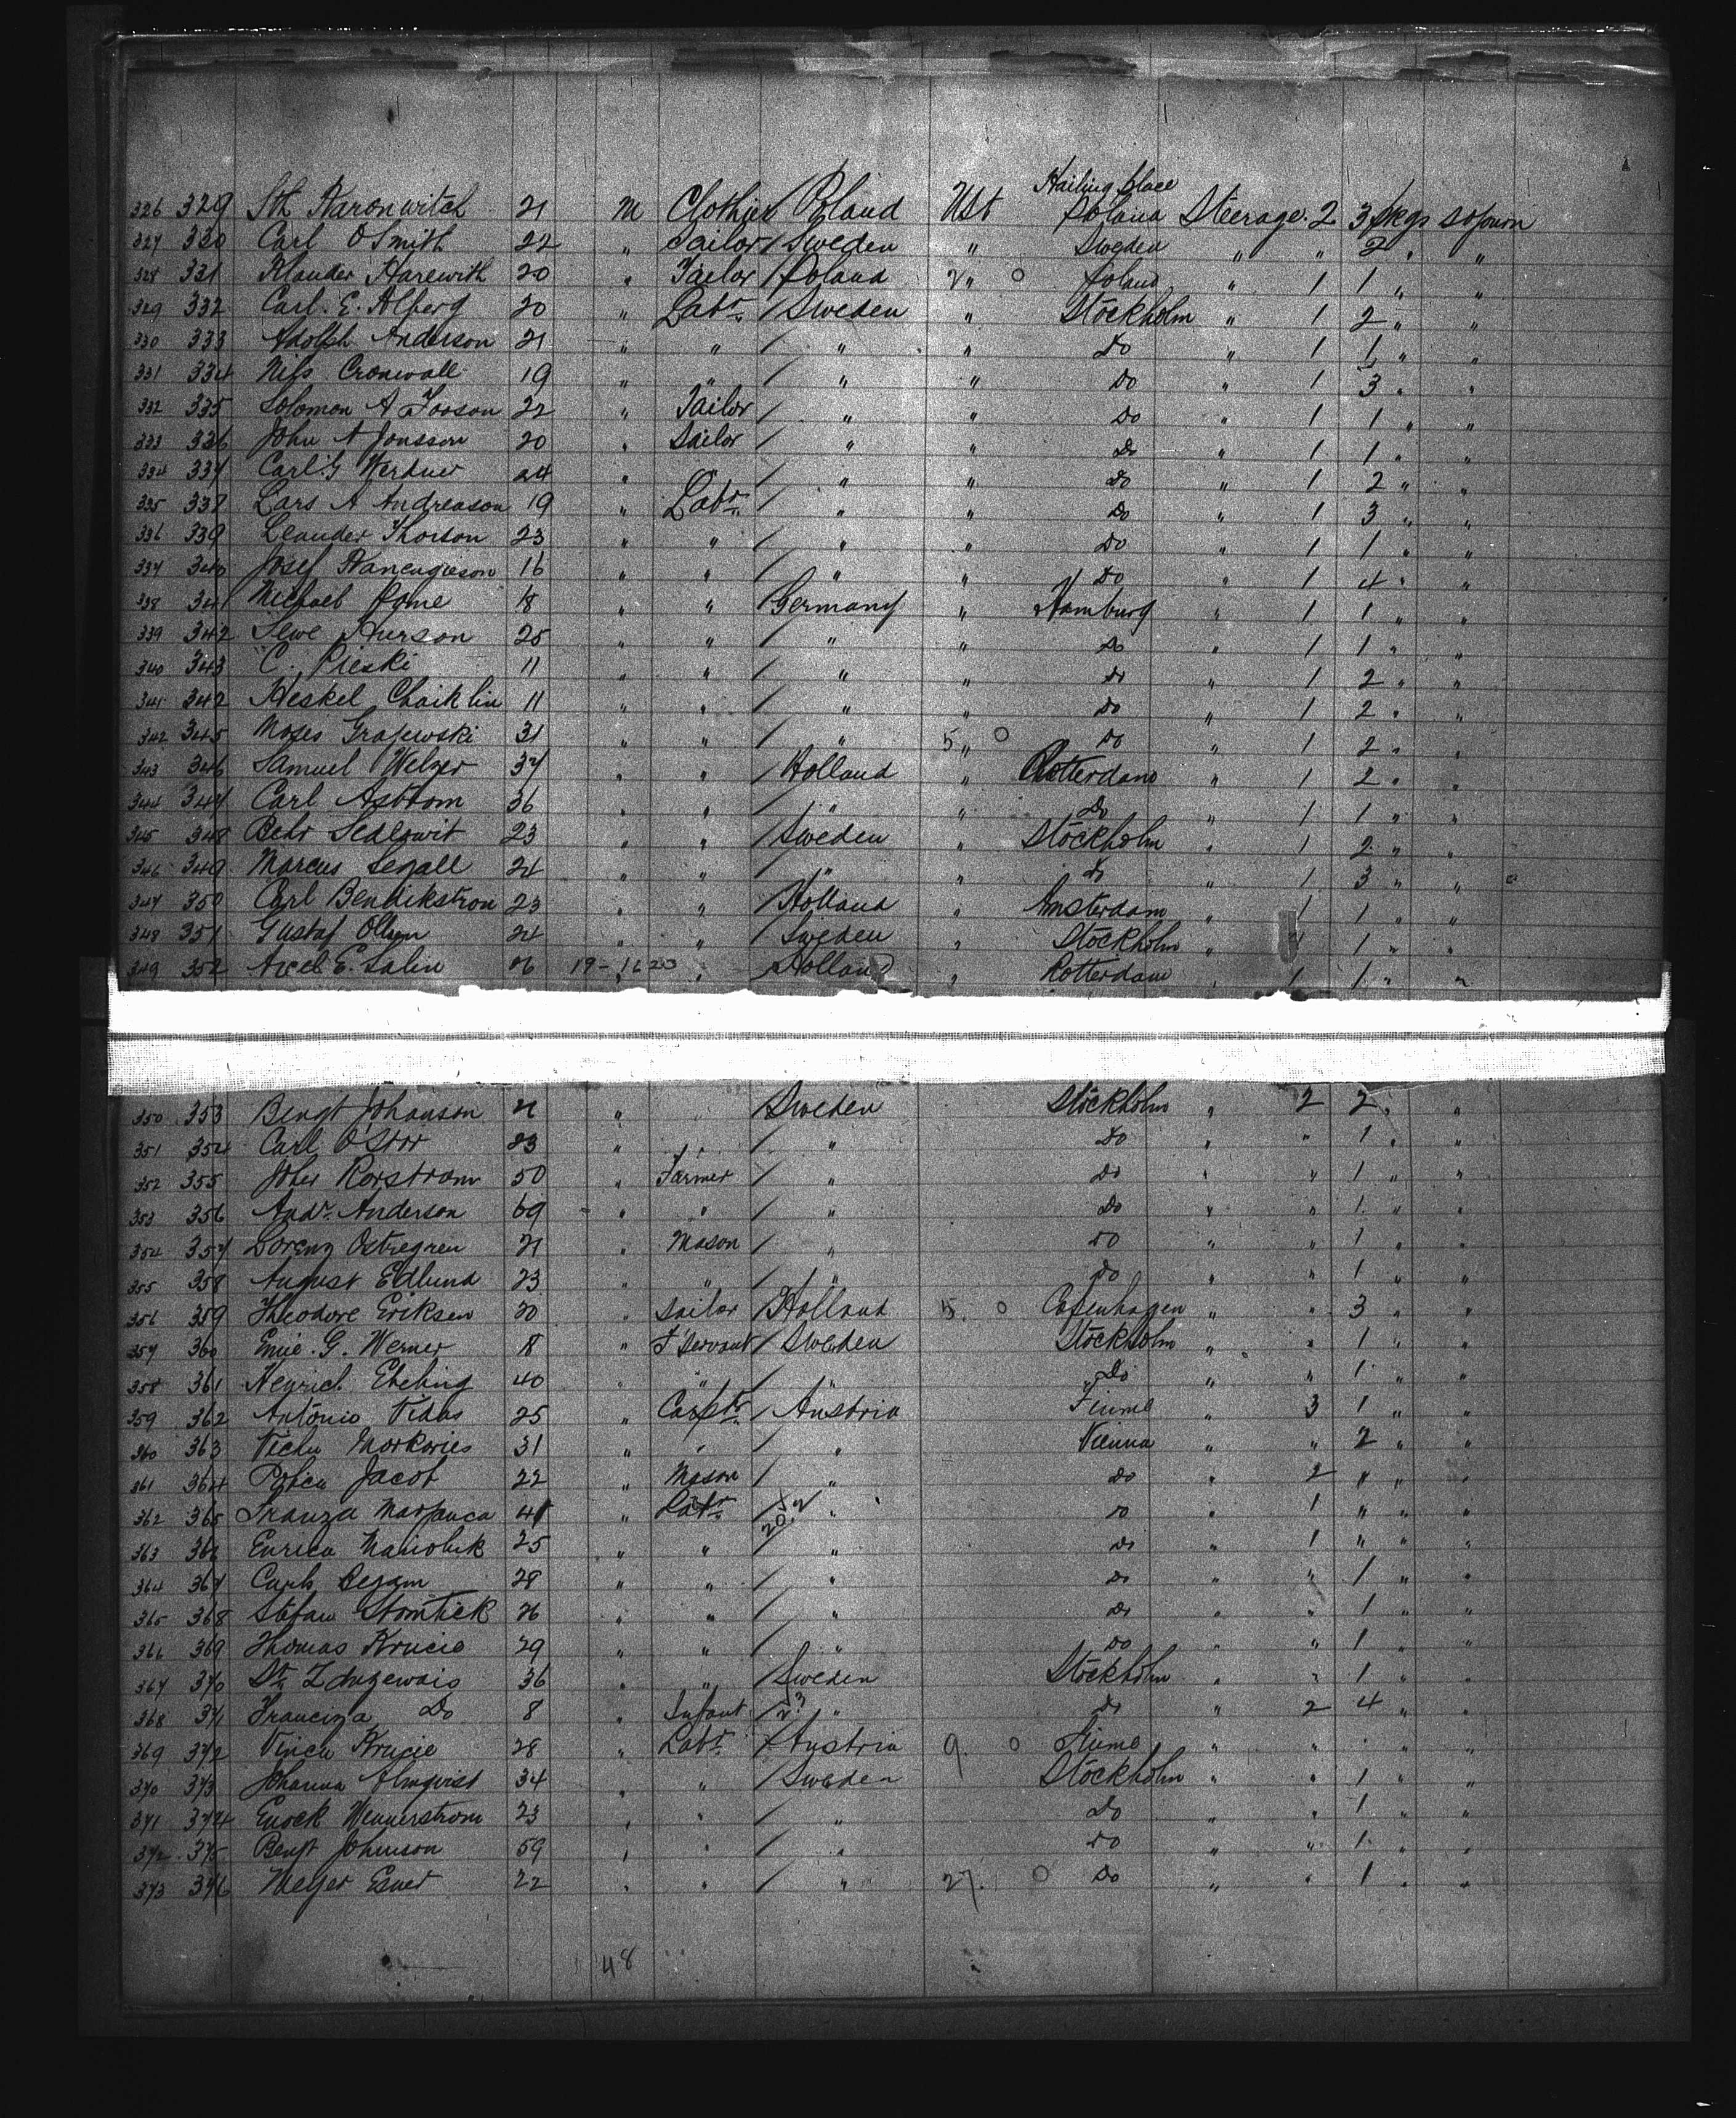 Hailing place
326 329 Sth Aaronwitch 21 m Clothier Poland USt Poland Steerage 2 3 pkgs sojourn
327 330 Carl O Smith 22 " Sailor / Sweden " Sweden " " 2 " "
328 331 Klander Harewith 20 " Tailor / Poland 2 " O Poland " 1 1 " "
329 332 Carl. E. Alberg 20 " Labr / Sweden " Stockholm " 1 2 " "
330 333 Adolph Anderson 21 " " / " " Do " 1 1 " "
331 334 Nils Cronwall 19 " " / " " Do " 1 3 " "
332 335 Solomon A 22 " Tailor / " " Do " 1 1 " "
333 336 John A Jonsson 20 " Sailor / " " Do " 1 1 " "
334 337 Carl G 24 " / " " Do " 1 2 " "
335 338 Lars A Andreason 19 " Labr / " " Do " 1 3 " "
336 339 Leander Thorson 23 " " / " " Do " 1 1 " "
337 340 Josef 16 " " / " " Do " 1 4 " "
338 341 Michael 18 " " Germany " Hamburg " 1 1 " "
339 342 25 " " / " " Do " 1 1 " "
340 343 C. Pieski 11 " " / " " Do " 1 2 " "
341 342 Heskel Chaiklin 11 " " / " " Do " 1 2 " "
342 345 Moses Grajewski 31 " " / " 5 " O Do " 1 2 " "
343 346 Samuel Welzer 37 " " / Holland " Rotterdam " 1 2 " "
344 347 Carl Astrom 36 " " " Do " 1 1 " "
345 348 Behr Sedlowit 23 " " / Sweden " Stockholm " 1 2 " "
346 349 Marcus Segall 24 " " / " " Do " 1 3 " "
347 350 Carl Bendikstron 23 " " / Holland " Amsterdam " 1 1 " "
348 351 Gustaf Olsen 24 " " / Sweden " Stockholm " 1 1 " "
349 352 Axel E. Salin 26 19 - 16 20 " / Holland " Rotterdam " 1 1 " "
350 353 Bengt Johanson 21 " Sweden Stockholm " 2 2 " "
351 354 Carl O Storr 23 " " / " Do " " 1 " "
352 355 Joher Rorstrom 50 " Farmer / " Do " " 1 " "
353 356 Andr. Anderson 69 " " / " Do " " 1 " "
354 357 Lorenz Ostregren 21 " Mason / " Do " " 1 " "
355 358 August Edlund 23 " " / " Do " " 1 " "
356 359 Theodore Eriksen 20 " Sailor / Holland 15. O Copenhagen " " 3 " "
357 360 Emie. G. Werner 18 " F Servant / Sweden Stockholm " " 1 " "
358 361 Henrich Ebeling 40 " " / " Do " " 1 " "
359 362 Antonio Vidas 25 " Carptr / Austria Fiume " 3 1 " "
360 363 Vichu Markovies 31 " " / " Vienna " " 2 " "
361 364 Jacob 22 " Mason / " Do " 2 " " "
362 365 Franza 41 " Labr / 20 " Do " 1 " " "
363 366 Enrico 25 " " / " Do " 1 " " "
364 367 Carls Begam 28 " " / " Do " " 1 " "
365 368 Stefan Stomtick 26 " " / " Do " " 1 " "
366 369 Thomas Krucie 29 " " / " Do " " 1 " "
367 370 36 " " / Sweden Stockholm " " 1 " "
368 371 Franciza Do 8 " Infant / " Do " 2 4 " "
369 372 Vincu Krucie 28 " Labr / Austria 9. O Fiume " " " " "
370 373 Johanna Almqvist 34 " " / Sweden Stockholm " " 1 " "
371 374 Enock Wennerstrom 23 " " / " Do " " 1 " "
372 375 Bengt Johnson 59 " " / " Do " " 1 " "
373 376 Meyer 22 " " / " 27. O Do " " 1 " "
48